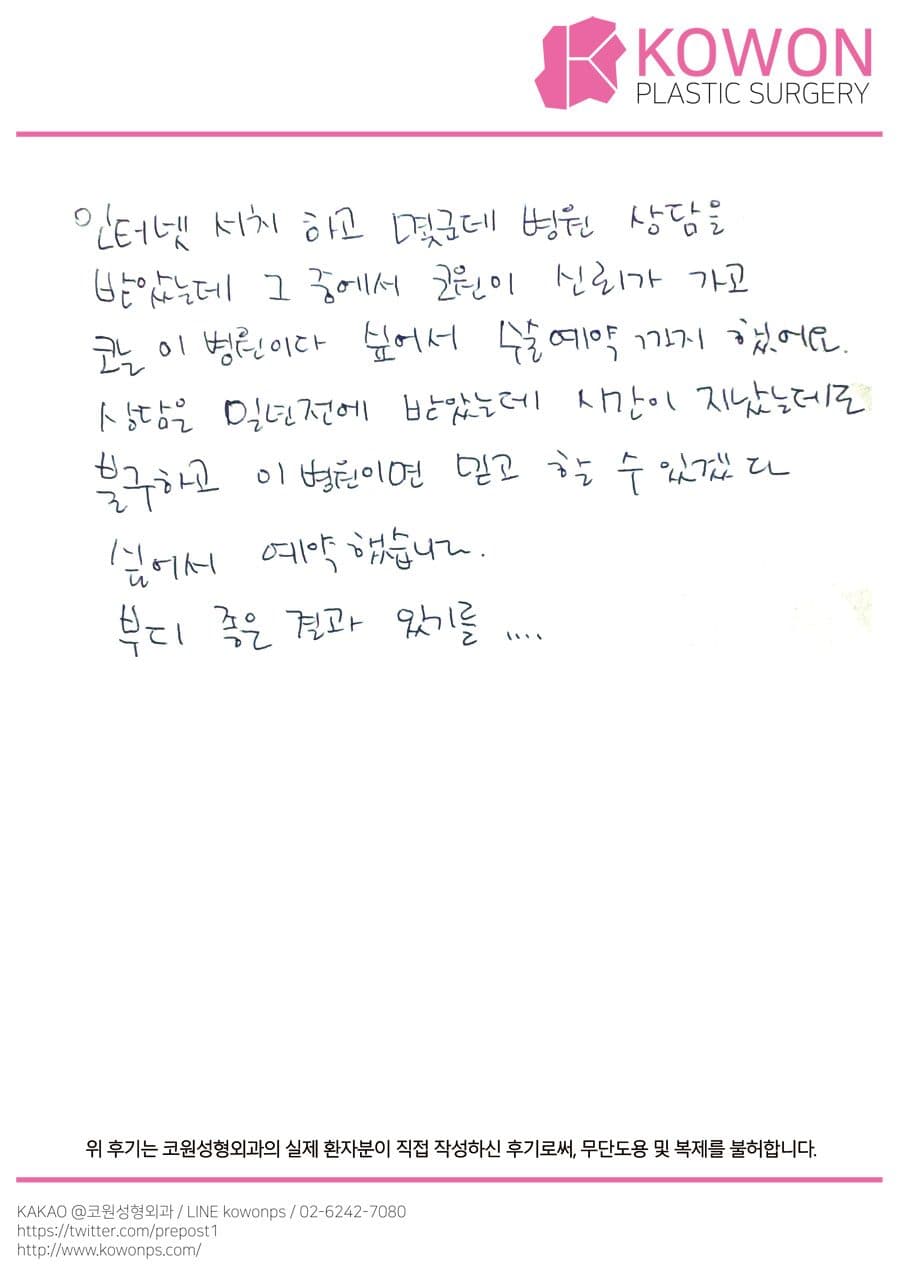 KOWON
PLASTIC SURGERY
인터넷 서치 하고 몇군데 병원 상담을
받았는데 그 중에서 코원이 신뢰가 가고
코는 이 병원이다 싶어서 수술예약 까지 했어요.
상담은 일년전에 받았는데 시간이 지났는데도
불구하고 이 병원이면 믿고 할 수 있겠다
싶어서 예약했습니다.
부디 좋은 결과 있기를 ....
위 후기는 코원성형외과의 실제 환자분이 직접 작성하신 후기로써, 무단도용 및 복제를 불허합니다.
KAKAO @코원성형외과 / LINE kowonps / 02-6242-7080
https://twitter.com/prepost1
http://www.kowonps.com/